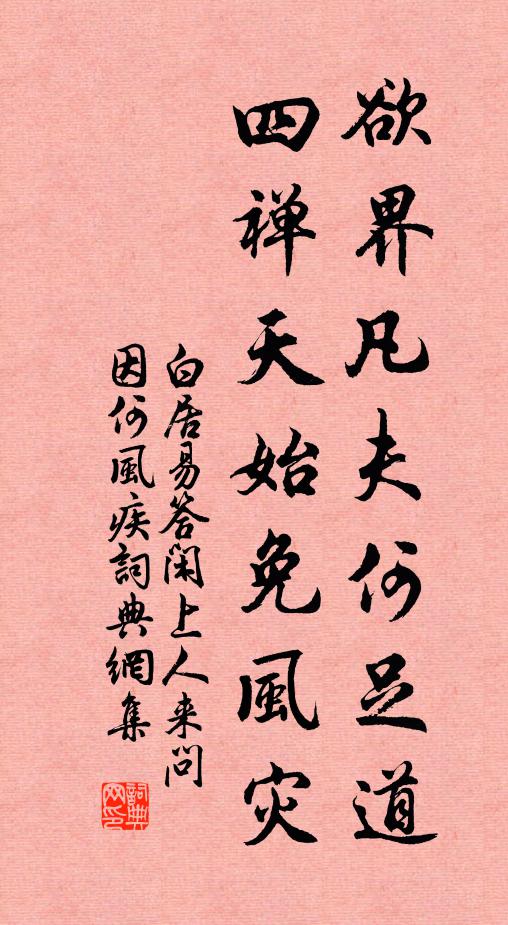 欲界凡夫何足道
四禅天始免風灾
白居易答閑上人来問
因何風疾詞典網集
詞典
网印